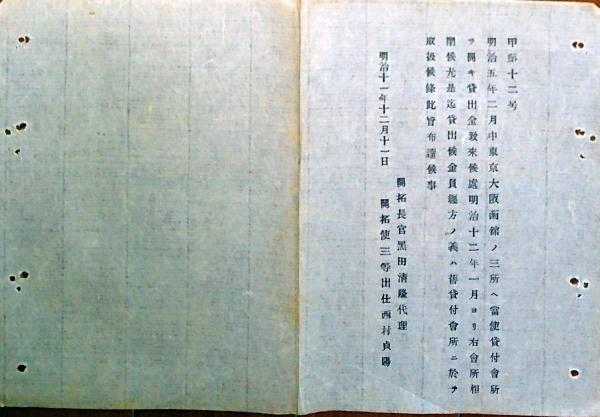 甲第十二号
明治五年二月中東京大阪函館ノ三所ヘ當使貸付會所
ヲ開キ貸出金致来候處明治十二年一月ヨリ右會所相
閉候尤是迄貸出候金員總方ノ義ハ舊貸付會所ニ於テ
取扱候條此旨布達候事
明治十一年十二月十一日
開拓長官黒田清隆代理
開拓使三等出仕西村貞陽